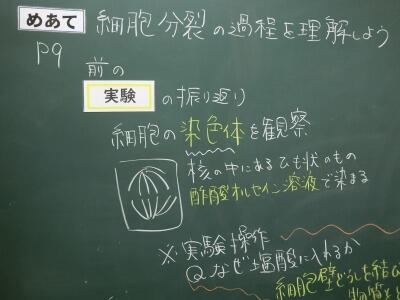 めあて 細胞分裂の過程を理解しよう
P9
前の
実験 の振り返り
細胞の染色体を観察
核の中にあるひも状のもの
酢酸オルセイン溶液で染まる
※実験操作
Qなぜ塩酸に入れるか
細胞壁どうしを結び
物質を